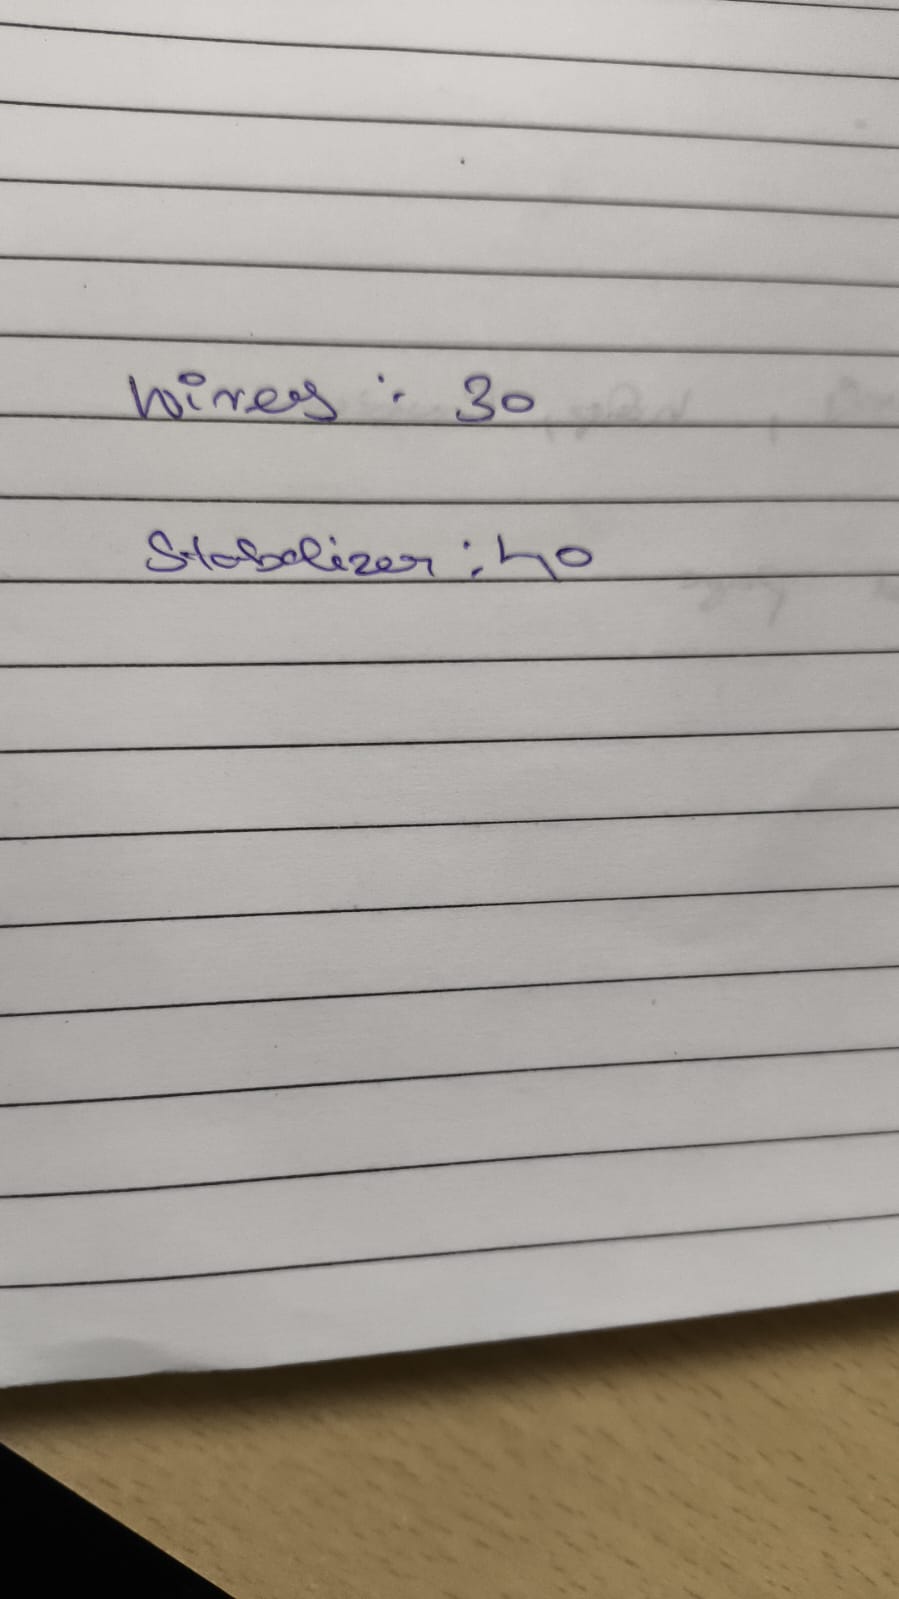 wires : 30
Stabelizer : 40